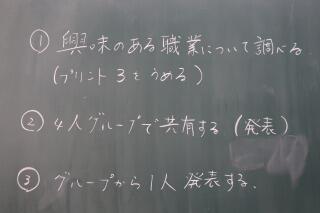 ① 興味のある職業について調べる
(プリント3をうめる)
② 4人グループで共有する (発表)
③ グループから1人発表する.